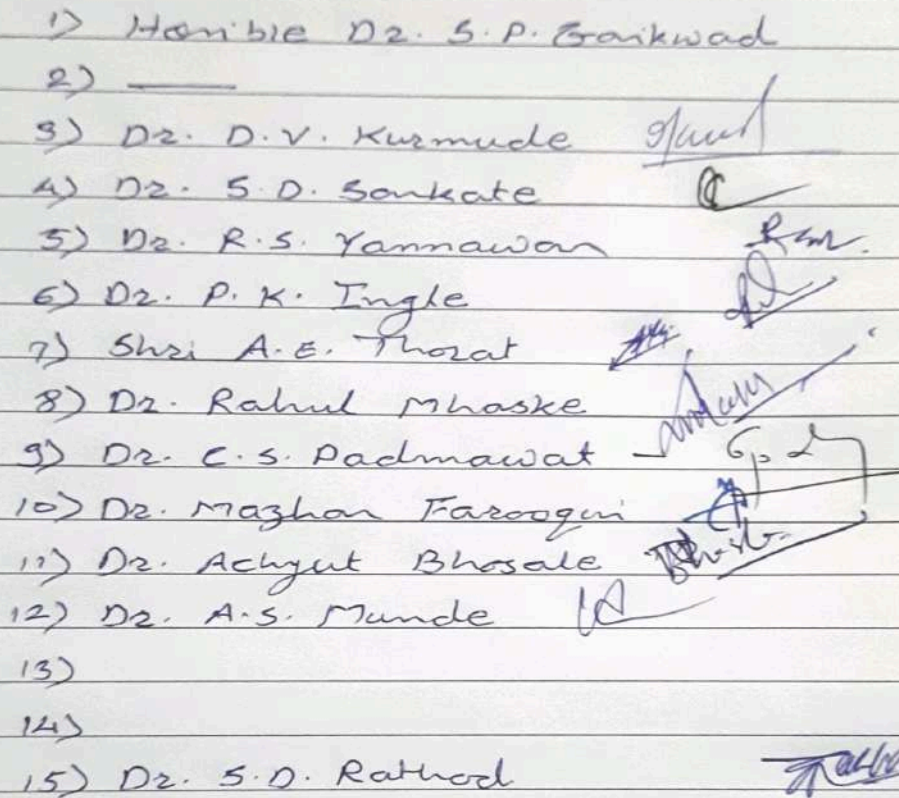 1) Hon'ble Dr. S.P. Gaikwad
2) ——
3) Dr. D.V. Kurmude
4) Dr. S.D. Sankate
5) Dr. R.S. Yannawar
6) Dr. P.K. Ingle
7) Shri A.E. Thorat
8) Dr. Rahul Mhaske
9) Dr. C.S. Padmawat
10) Dr. Mazhar Farooqui
11) Dr. Achyut Bhosale
12) Dr. A.S. Munde
13)
14)
15) Dr. S.D. Rathod